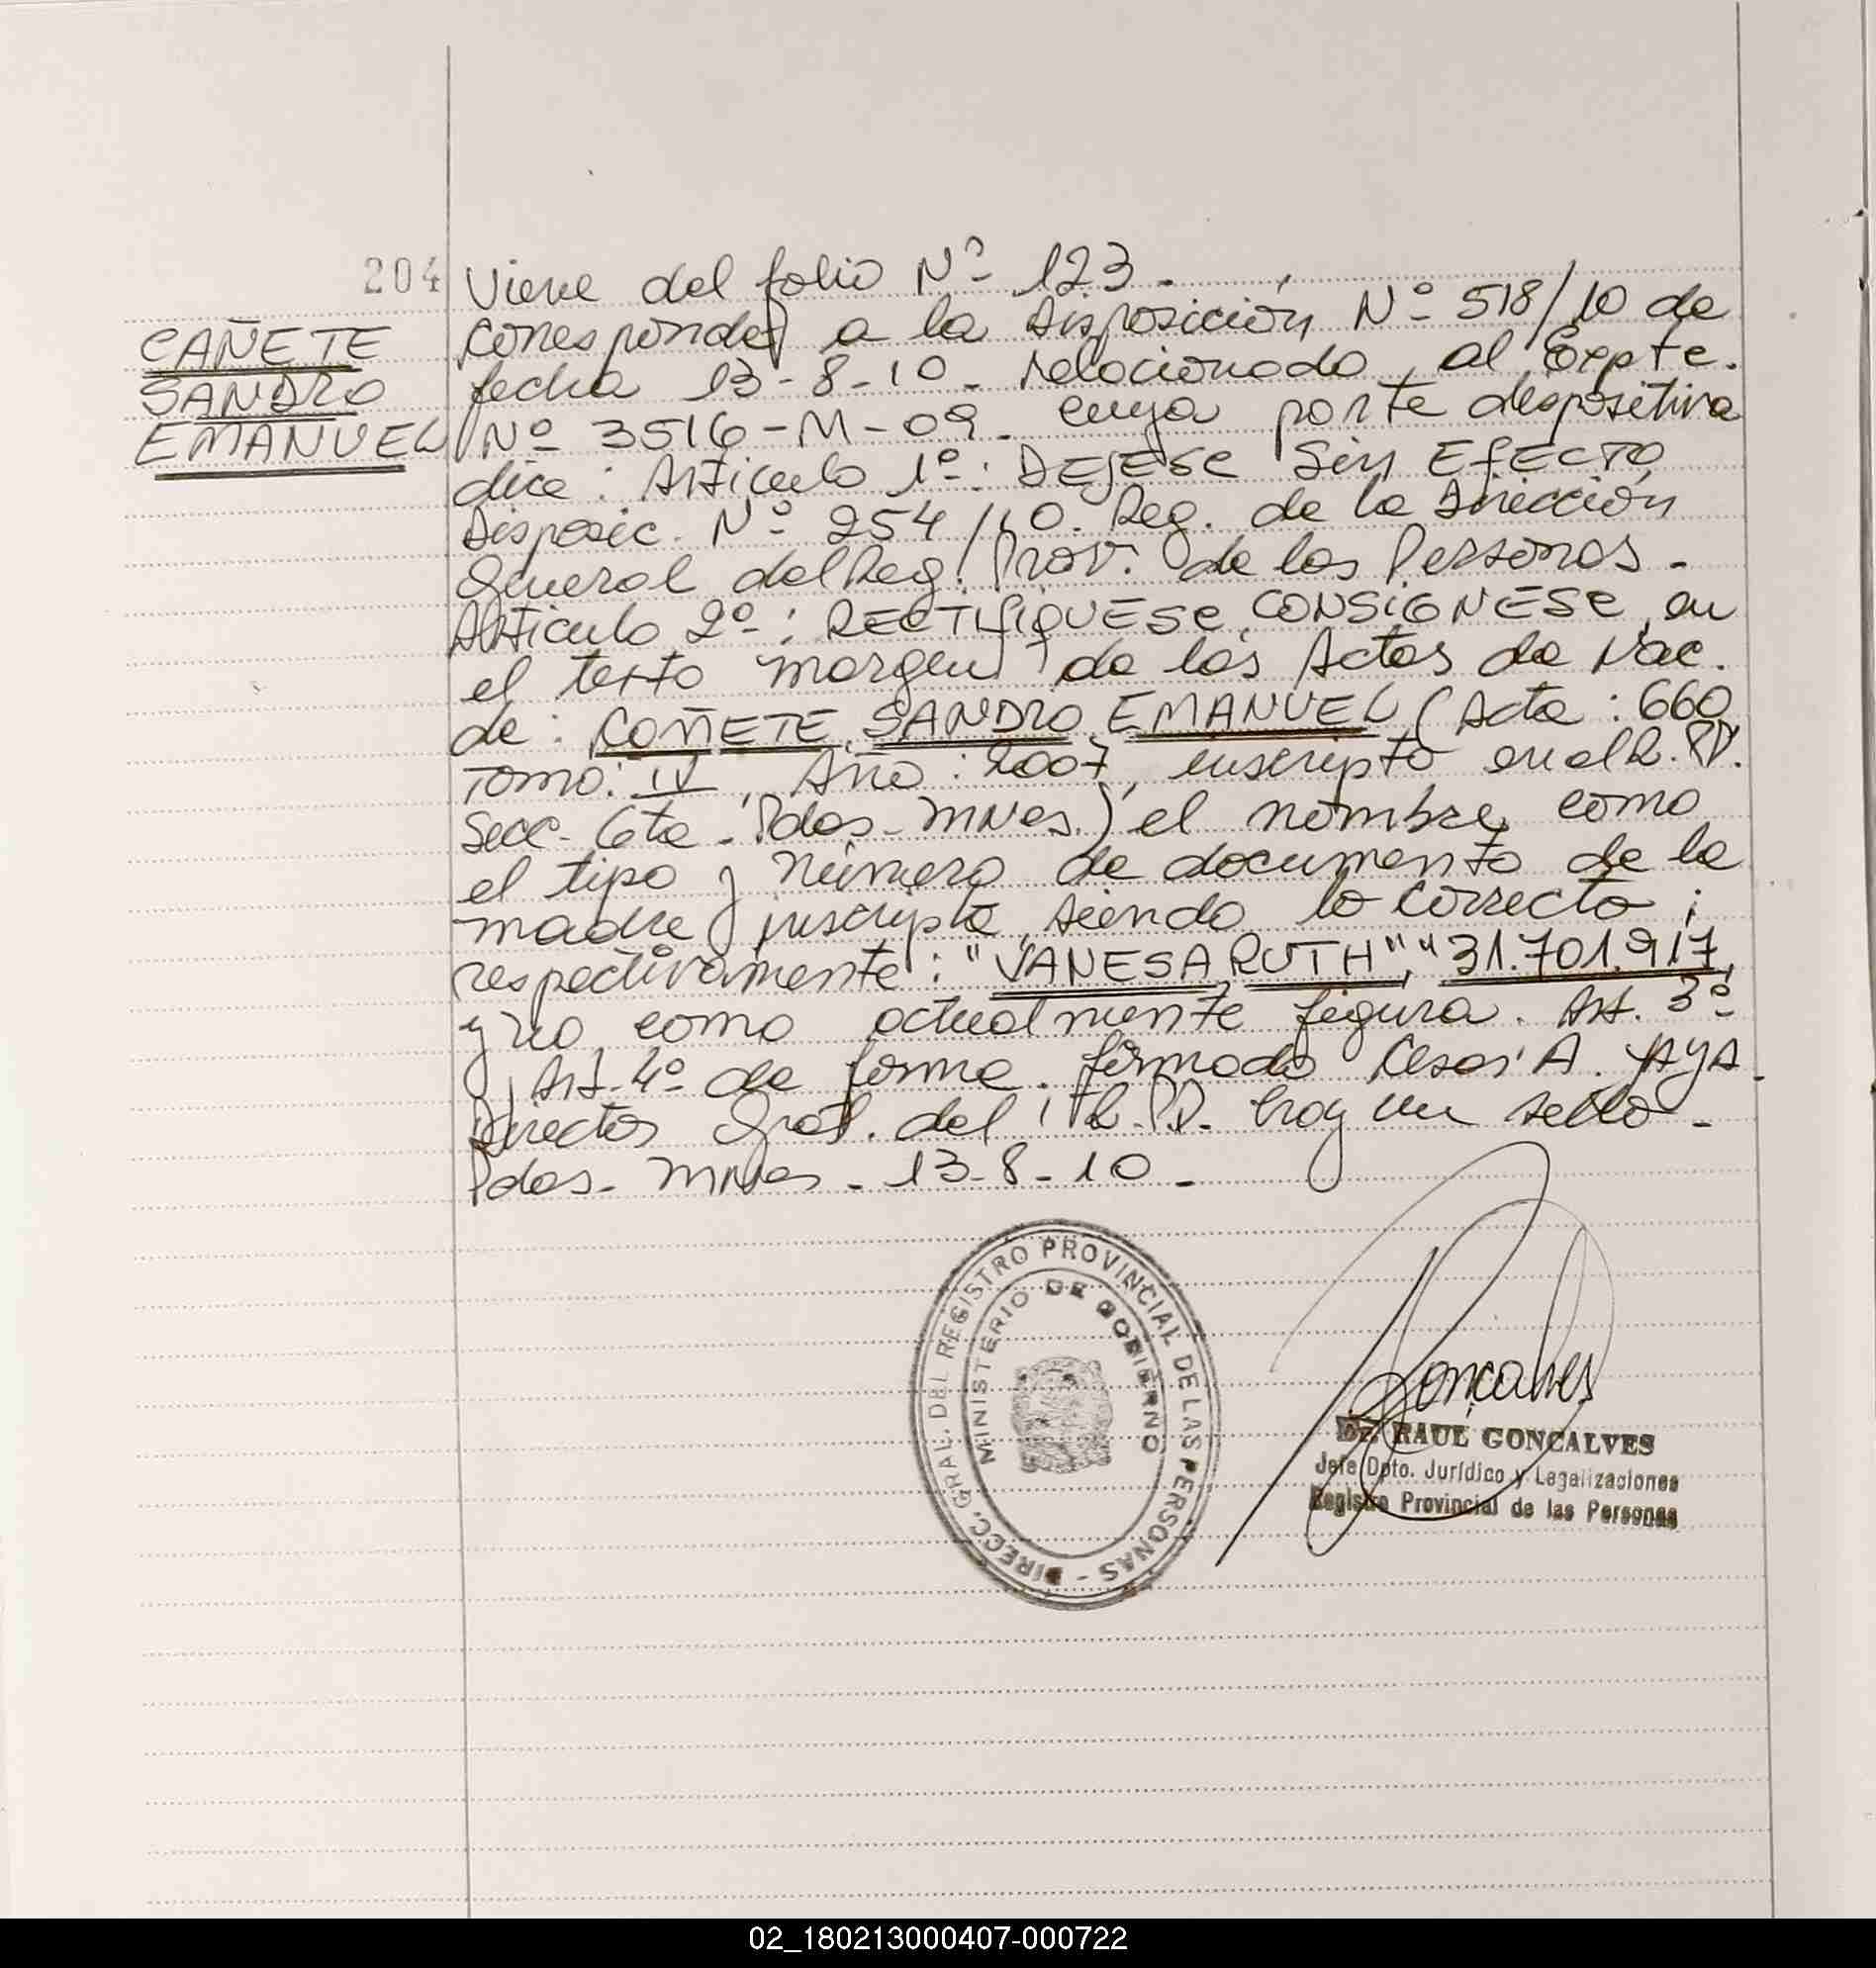 204
CAÑETE
SANDRO
EMANUEL
Viene del folio Nº 123 -
Corresponde a la Disposición Nº 518/10 de
fecha 13-8-10- relacionado al Expte.
Nº 3516-M-09- cuya parte dispositiva
dice: Articulo 1º: DEJESE Sin EfECTO
Disposic. Nº 254/10. Reg. de la Dirección
General del Reg. Prov. de las Personas -
Articulo 2º: RECTIFIQUESE, CONSIGNESE, en
el texto margen de las Actas de Nac.
de: CAÑETE, SANDRO EMANUEL (Acta: 660
TOMO: IV, Año: 2007, inscripto en el R.PP.
Secc- 6ta - Pdas - MNes.) el nombre, como
el tipo y número de documento de la
madre inscripta, siendo lo correcto;
respectivamente: "VANESA RUTH", "31.701.917,
y no como actualmente figura. Art. 3º
y Art-4º de forma. firmado Cesar A. YAYA.
Director Gral. del R.PP. hay un sello -
Pdas- MNes - 13-8-10 -
DIRECC. GRAL. DEL REGISTRO PROVINCIAL DE LAS PERSONAS -
MINISTERIO DE GOBIERNO
Goncalves
Dr. RAUL GONCALVES
Jefe Dpto. Jurídico y Legalizaciones
Registro Provincial de las Personas
02_180213000407-000722